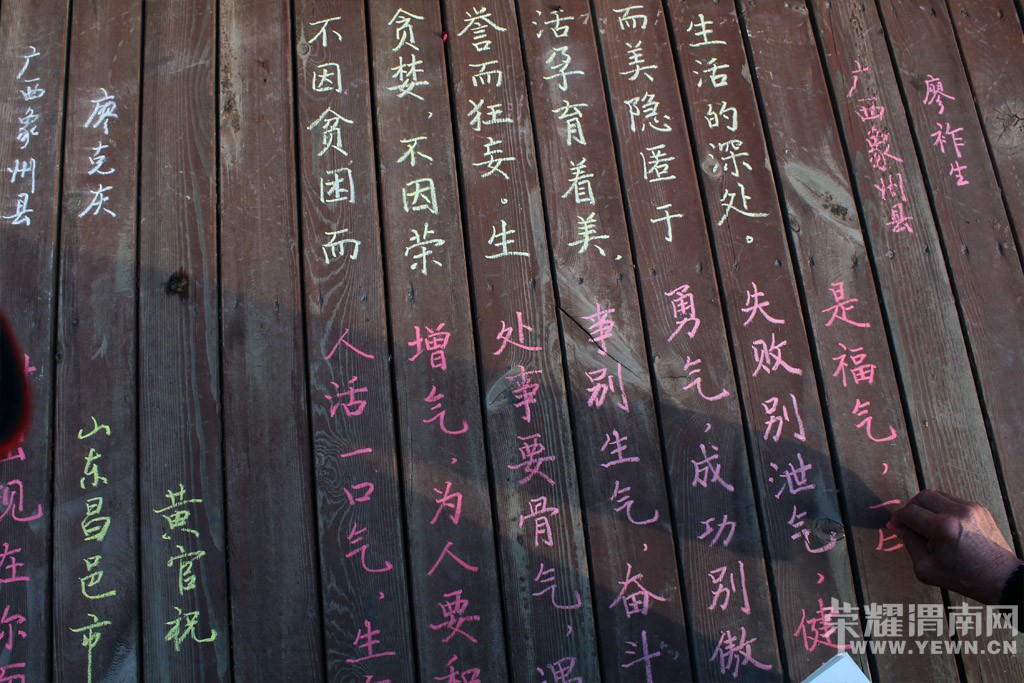 广西象州县
廖克灰
不因贫困而
贪婪，不因荣
誉而狂妄。生
活孕育着美，
而美隐匿于
生活的深处。
广西象州县
廖祚生
现在你
山东昌邑市
黄官祝
人活一口气，生
增气，为人要和
处事要骨气，遇
事别生气，奋斗
勇气，成功别傲
失败别泄气，健
是福气，一
荣耀渭南网
WWW.YEWN.CN